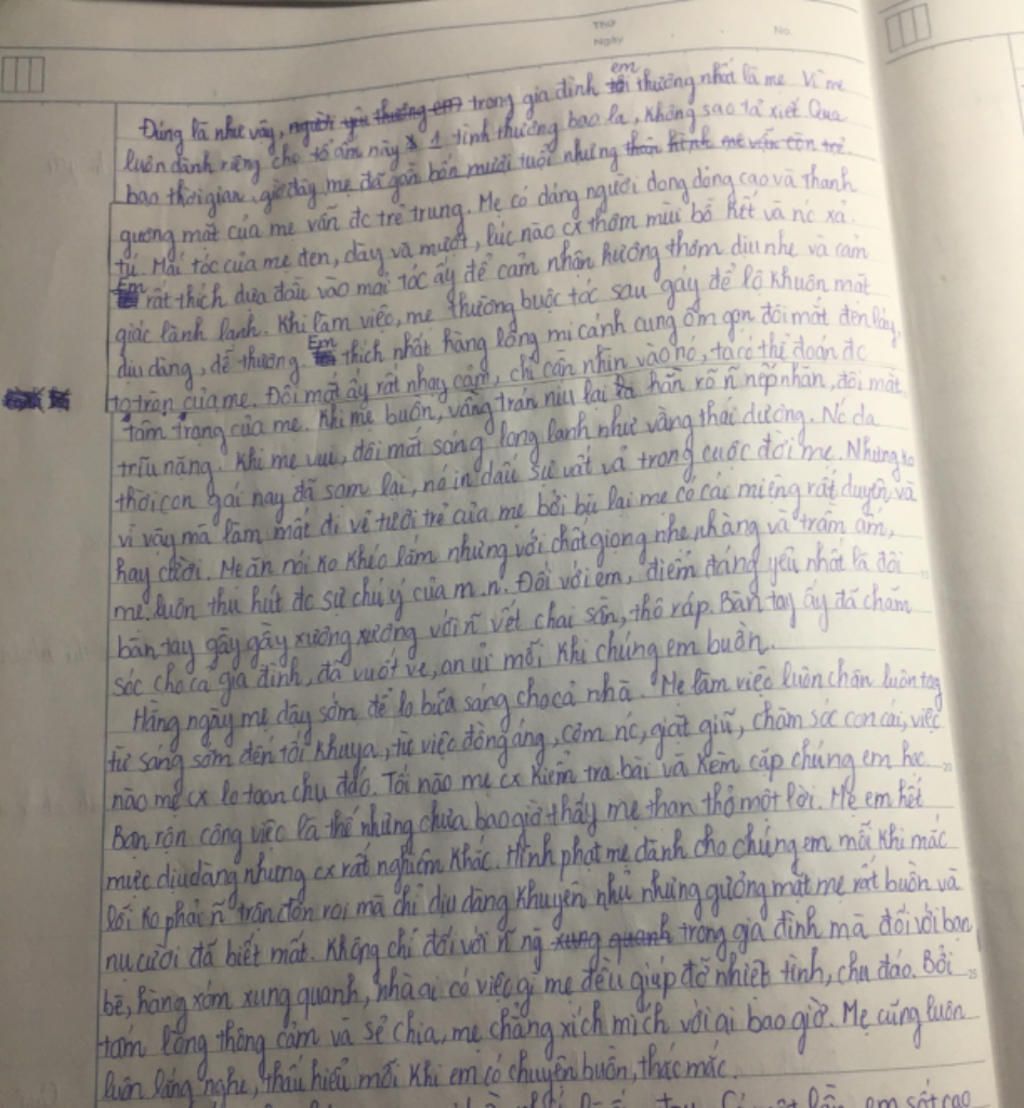 Thứ
Ngày
No.
Đúng là như vậy, người yêu thương em trong gia đình em tôi thương nhất là mẹ. Vì mẹ
luôn dành riêng cho tổ ấm này 1 tình thương bao la, không sao tả xiết. Qua
bao thời gian, giờ đây, mẹ đã gần bốn mươi tuổi nhưng thân hình mẹ vẫn còn trẻ.
gương mặt của mẹ vẫn đc trẻ trung. Mẹ có dáng người dong dỏng cao và thanh
tú. Mái tóc của mẹ đen, dày và mượt, lúc nào cx thơm mùi bồ kết và nc xả.
Em rất thích dựa đầu vào mái tóc ấy để cảm nhận hương thơm dịu nhẹ và cảm
giác lành lạnh. Khi làm việc, mẹ thường buộc tóc sau gáy để lộ khuôn mặt
dịu dàng, dễ thương. Em thích nhất hàng lông mi cánh cung ôm gọn đôi mắt đen láy,
to tròn của mẹ. Đôi mắt ấy rất nhạy cảm, chỉ cần nhìn vào nó, ta có thể đoán đc
tâm trạng của mẹ. Khi mẹ buồn, vầng trán níu lại hằn rõ ñ nếp nhăn, đôi mắt
trĩu nặng. Khi mẹ vui, đôi mắt sáng long lanh như vầng thái dương. Nc da
thời con gái nay đã sạm lại, nó in dấu sự vất vả trong cuộc đời mẹ. Nhưng ko
vì vậy mà làm mất đi vẻ tươi trẻ của mẹ bởi bù lại mẹ có cái miệng rất duyên và
hay cười. Mẹ ăn nói ko khéo lắm nhưng với chất giọng nhẹ nhàng và trầm ấm,
mẹ luôn thu hút đc sự chú ý của m.n. Đối với em, điểm đáng yêu nhất là đôi
bàn tay gầy gầy xương xương với ñ vết chai sần, thô ráp. Bàn tay ấy đã chăm
sóc cho cả gia đình, đã vuốt ve, an ủi mỗi khi chúng em buồn.
Hằng ngày mẹ dậy sớm để lo bữa sáng cho cả nhà. Mẹ làm việc luôn chân luôn tay
từ sáng sớm đến tối khuya, từ việc đồng áng, cơm nc, giặt giũ, chăm sóc con cái, việc
nào mẹ cx lo toan chu đáo. Tối nào mẹ cx kiểm tra bài và kèm cặp chúng em học.
Bận rộn công việc là thế nhưng chưa bao giờ thấy mẹ than thở một lời. Mẹ em hết
mực dịu dàng nhưng cx rất nghiêm khắc. Hình phạt mẹ dành cho chúng em mỗi khi mắc
lỗi ko phải ñ trận đòn roi mà chỉ dịu dàng khuyên nhủ nhưng gương mặt mẹ rất buồn và
nụ cười đã biết mất. Không chỉ đối với ñ ng xung quanh trong gia đình mà đối với bạn
bè, hàng xóm xung quanh, nhà ai có việc gì mẹ đều giúp đỡ nhiệt tình, chu đáo. Bởi
tấm lòng thông cảm và sẻ chia, mẹ chẳng xích mích với ai bao giờ. Mẹ cũng luôn
luôn lắng nghe, thấu hiểu mỗi khi em có chuyện buồn, thắc mắc.
em sốt cao